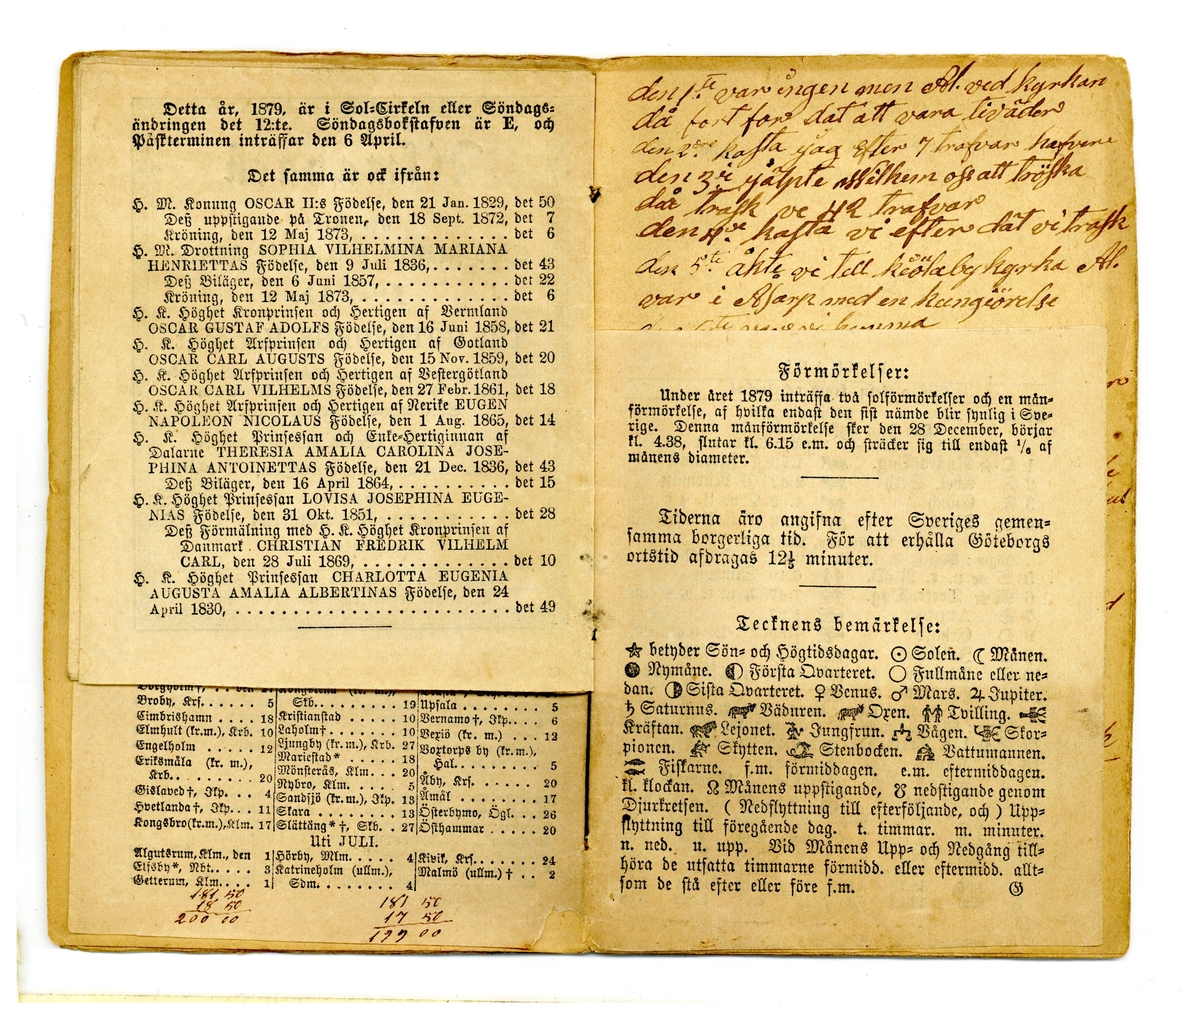 Detta år, 1879, är i Sol-Cirkeln eller Söndags-
ändringen det 12:te. Söndagsbokstafven är E, och
Påskterminen inträffar den 6 April.
Det samma är ock ifrån:
H. M. Konung OSCAR II:s Födelse, den 21 Jan. 1829, det 50
Deß uppstigande på Tronen, den 18 Sept. 1872, det 7
Kröning, den 12 Maj 1873, . . . . . . . . . . . . det 6
H. M. Drottning SOPHIA VILHELMINA MARIANA
HENRIETTAS Födelse, den 9 Juli 1836, . . . . . . . det 43
Deß Biläger, den 6 Juni 1857, . . . . . . . . . . . det 22
Kröning, den 12 Maj 1873, . . . . . . . . . . . . det 6
H. K. Höghet Kronprinsen och Hertigen af Vermland
OSCAR GUSTAF ADOLFS Födelse, den 16 Juni 1858, det 21
H. K. Höghet Arfprinsen och Hertigen af Gotland
OSCAR CARL AUGUSTS Födelse, den 15 Nov. 1859, det 20
H. K. Höghet Arfprinsen och Hertigen af Vestergötland
OSCAR CARL VILHELMS Födelse, den 27 Febr. 1861, det 18
H. K. Höghet Arfprinsen och Hertigen af Nerike EUGEN
NAPOLEON NICOLAUS Födelse, den 1 Aug. 1865, det 14
H. K. Höghet Prinsessan och Enke-Hertiginnan af
Dalarne THERESIA AMALIA CAROLINA JOSE-
PHINA ANTOINETTAS Födelse, den 21 Dec. 1836, det 43
Deß Biläger, den 16 April 1864, . . . . . . . . . . det 15
H. K. Höghet Prinsessan LOVISA JOSEPHINA EUGE-
NIAS Födelse, den 31 Okt. 1851, . . . . . . . . . . . det 28
Deß Förmälning med H. K. Höghet Kronprinsen af
Danmark CHRISTIAN FREDRIK VILHELM
CARL, den 28 Juli 1869, . . . . . . . . . . . . det 10
H. K. Höghet Prinsessan CHARLOTTA EUGENIA
AUGUSTA AMALIA ALBERTINAS Födelse, den 24
April 1830, . . . . . . . . . . . . . . . . . . . . . . . det 49
Broby, Krs. . . . . . 5
Cimbrishamn . . . . 18
Elmhult (kr.m.), Krb. 10
Engelholm . . . . . 12
Eriksmåla (kr. m.),
Krb. . . . . . . . . 20
Gislaved †, Jkp. . . . 4
Hvetlanda †, Jkp. . . 11
Kongsbro (kr.m.), Klm. 17
Skb. . . . . . . . . 19
Kristianstad . . . . . 10
Laholm † . . . . . . 10
Ljungby (kr.m.), Krb. 27
Mariestad * . . . . . 18
Mönsterås, Klm. . . 20
Nybro, Klm. . . . . 5
Sandsjö (kr. m.), Jkp. 13
Skara . . . . . . . 13
Slättäng * †, Skb. . . 27
Upsala . . . . . . . 5
Vernamo †, Jkp. . . . 6
Vexiö (kr. m.) . . . 12
Voxtorps by (kr. m.),
Hal. . . . . . . . . 5
Åby, Krs. . . . . . . 20
Åmål . . . . . . . . 17
Österbymo, Ögl. . . . 26
Östhammar . . . . . 20
Uti JULI.
Algutsrum, Klm., den 1
Elfsby *, Nbt. . . . . 3
Getterum, Klm. . . . 1
Hörby, Mlm. . . . . 4
Katrineholm (ullm.),
Sdm. . . . . . . . . 4
Kivik, Krs. . . . . . . 24
Malmö (ullm.) † . . . 2
181 50
18 50
200 00
181 50
17 50
199 00
den 1ste var ingen men Al. ved kyrkan
då fort for dat att vara tiväder
den 2dre kasta jag efter 7 trafvar hafvere
den 3je jälpte Wilhem oss att tröska
där trask ve 42 trafvar
den 4de kasta vi efter dät vi trask
den 5te åkte vi till kiölaby kyrka Al.
var i Asarp med en kungiörelse
hemma
Förmörkelser:
Under året 1879 inträffa två solförmörkelser och en mån-
förmörkelse, af hvilka endast den sist nämde blir synlig i Sve-
rige. Denna månförmörkelse sker den 28 December, börjar
kl. 4.38, slutar kl. 6.15 e.m. och sträcker sig till endast 1/6 af
månens diameter.
Tiderna äro angifna efter Sveriges gemen-
samma borgerliga tid. För att erhålla Göteborgs
ortstid afdragas 12½ minuter.
Tecknens bemärkelse:
☆ betyder Sön- och Högtidsdagar. ☉ Solen. ☾ Månen.
● Nymåne. ◐ Första Qvarteret. ○ Fullmåne eller ne-
dan. ◑ Sista Qvarteret. ♀ Venus. ♂ Mars. ♃ Jupiter.
♄ Saturnus. Väduren. Oxen. Tvilling.
Kräftan. Lejonet. Jungfrun. Vågen. Skor-
pionen. Skytten. Stenbocken. Vattumannen.
Fiskarne. f.m. förmiddagen. e.m. eftermiddagen.
kl. klockan. ☊ Månens uppstigande, ☋ nedstigande genom
Djurkretsen. ( Nedflyttning till efterföljande, och ) Upp-
flyttning till föregående dag. t. timmar. m. minuter.
n. ned. u. upp. Vid Månens Upp- och Nedgång till-
höra de utsatta timmarne förmidd. eller eftermidd. allt-
som de stå efter eller före f.m. G